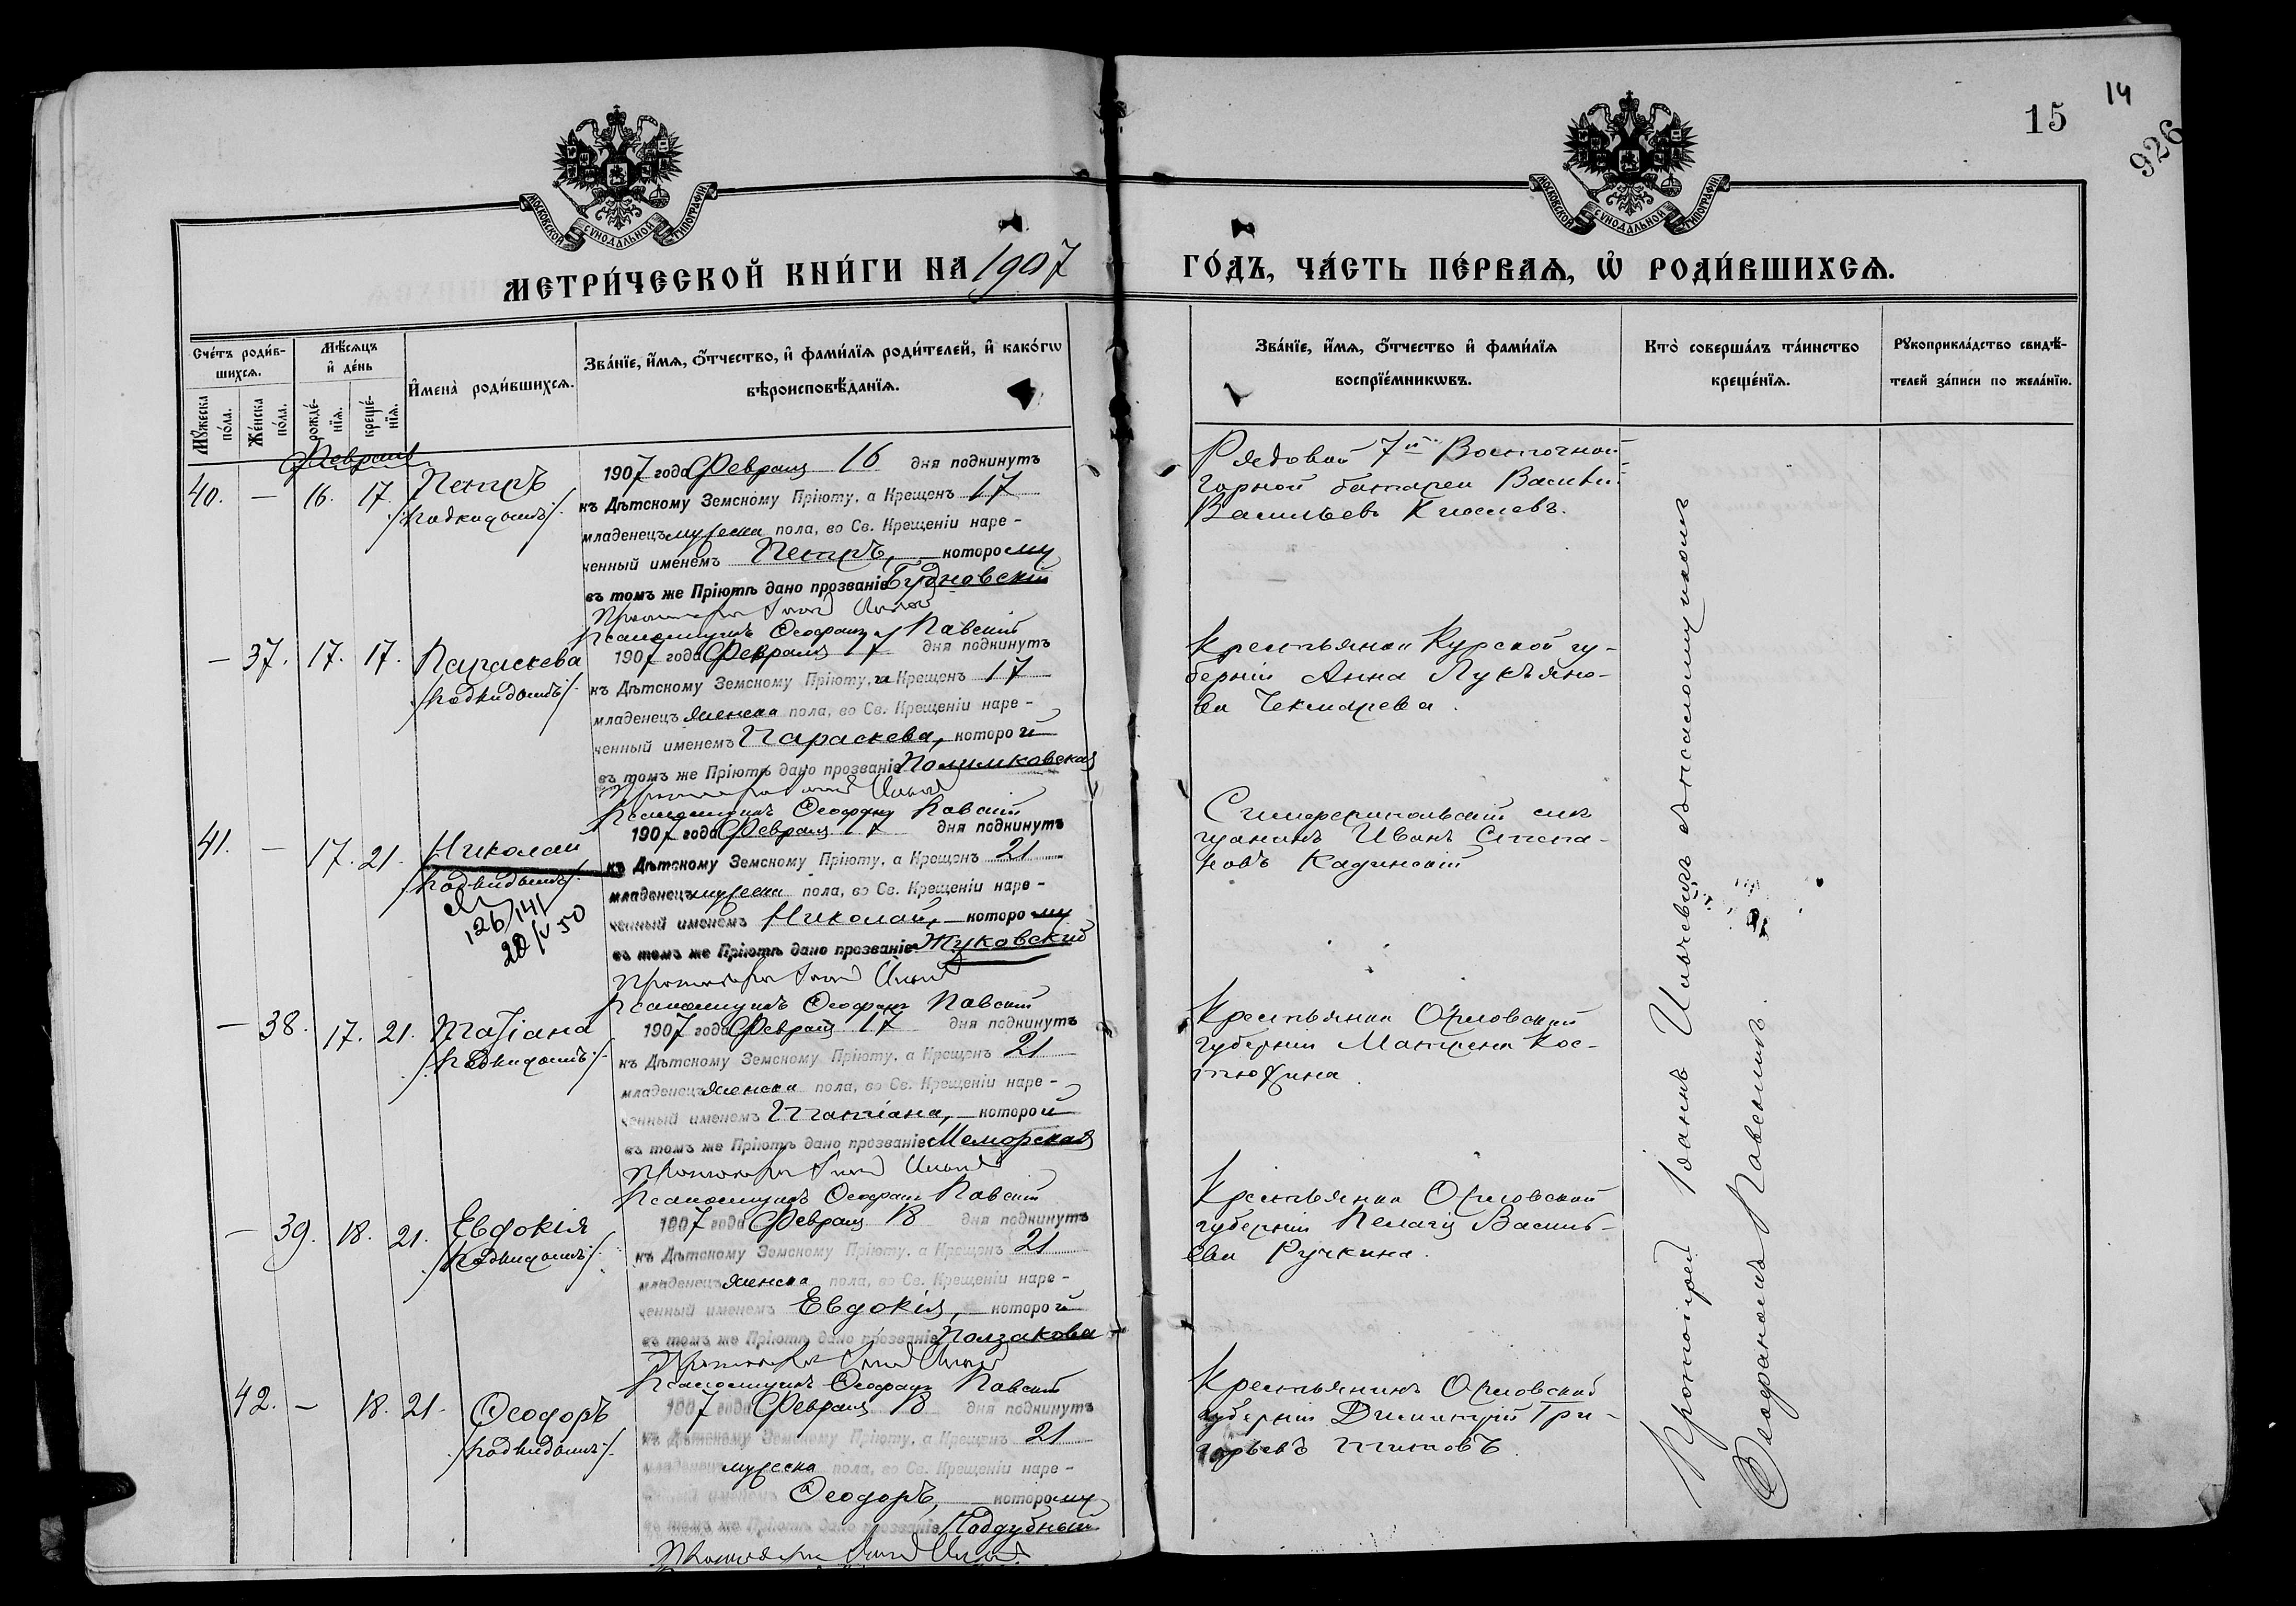 15
14
926
МОСКОВСКОЙ СѴНОДАЛЬНОЙ ТИПОГРАФІИ
МОСКОВСКОЙ СѴНОДАЛЬНОЙ ТИПОГРАФІИ
МЕТРИ́ЧЕСКОЙ КНИ́ГИ НА 1907
ГО́ДЪ, ЧА́СТЬ ПЕ́РВАѦ, Ѡ҆ РОДИ́ВШИХСѦ.
Сче́тъ роди́в-
шихсѧ.
Мꙋжеска по́ла.
Же́нска по́ла.
Мѣ́сѧцъ и҆ де́нь
рожде́-
нїѧ.
креще́-
нїѧ.
И҆мена̀ роди́вшихсѧ.
Зва́нїе, и҆́мѧ, ѻ҆́тчество, и҆ фами́лїѧ роди́телей, и҆ како́гѡ
вѣроисповѣ́данїѧ.
Зва́нїе, и҆́мѧ, ѻ҆́тчество и҆ фами́лїѧ
воспрїе́мникѡвъ.
Кто̀ соверша́лъ та́инство
креще́нїѧ.
Рꙋкоприкла́дство свидѣ́-
телей за́писи по жела́нїю.
Февраль
40. — 16. 17. Петръ
/:подкидышъ:/
1907 года Февраля 16 дня подкинутъ
къ Дѣтскому Земскому Пріюту, а Крещенъ 17
младенецъ мужеска пола, во Св. Крещеніи наре-
ченный именемъ Петръ, которому
въ томъ же Пріютѣ дано прозваніе Будновскій
Протоіерей Іоаннъ
Псаломщикъ Ѳеофанъ Павскій
Рядовой 7й Восточной
горной батареи Василій
Васильевъ Киселевъ.
— 37. 17. 17. Параскева
/:подкидышъ:/
1907 года Февраля 17 дня подкинутъ
къ Дѣтскому Земскому Пріюту, и Крещенъ 17
младенецъ женска пола, во Св. Крещеніи наре-
ченный именемъ Параскева, которой
въ томъ же Пріютѣ дано прозваніе
Протоіерей Іоаннъ
Псаломщикъ Ѳеофанъ Павскій
Крестьянка Курской гу-
берніи Анна Лукьяно-
ва Чекмарева.
41. — 17. 21. Николай
/:подкидышъ:/
126/141
20/V 50
1907 года Февраля 17 дня подкинутъ
къ Дѣтскому Земскому Пріюту, а Крещенъ 21
младенецъ мужеска пола, во Св. Крещеніи наре-
ченный именемъ Николай, которому
въ томъ же Пріютѣ дано прозваніе Жуковский
Протоіерей Іоаннъ
Псаломщикъ Ѳеофанъ Павскій
Симферопольскій
Иванъ Степа-
новъ Кадинскій
— 38. 17. 21. Татіана
/:подкидышъ:/
1907 года Февраля 17 дня подкинутъ
къ Дѣтскому Земскому Пріюту, а Крещенъ 21
младенецъ женска пола, во Св. Крещеніи наре-
ченный именемъ Татіана, которой
въ томъ же Пріютѣ дано прозваніе Меморская
Протоіерей Іоаннъ
Псаломщикъ Ѳеофанъ Павскій
Крестьянка Орловской
губерніи Матрена Кос-
тюхина.
— 39. 18. 21. Евдокія
/:подкидышъ:/
1907 года Февраля 18 дня подкинутъ
къ Дѣтскому Земскому Пріюту, а Крещенъ 21
младенецъ женска пола, во Св. Крещеніи наре-
ченный именемъ Евдокія, которой
въ томъ же Пріютѣ дано прозваніе Ползакова
Протоіерей Іоаннъ
Псаломщикъ Ѳеофанъ Павскій
Крестьянка Орловской
губерніи Пелагія Василь-
ева Ручкина.
42. — 18. 21. Ѳеодоръ
/:подкидышъ:/
1907 года Февраля 18 дня подкинутъ
къ Дѣтскому Земскому Пріюту, а Крещенъ 21
младенецъ мужеска пола, во Св. Крещеніи наре-
ченный именемъ Ѳеодоръ, которому
въ томъ же Пріютѣ дано прозваніе Поддубный
Протоіерей Іоаннъ
Крестьянинъ Орловской
губерніи Димитрій Гри-
горьевъ Титовъ.
Протоіерей Іоаннъ съ псаломщикомъ
Ѳеофаномъ Павскимъ.